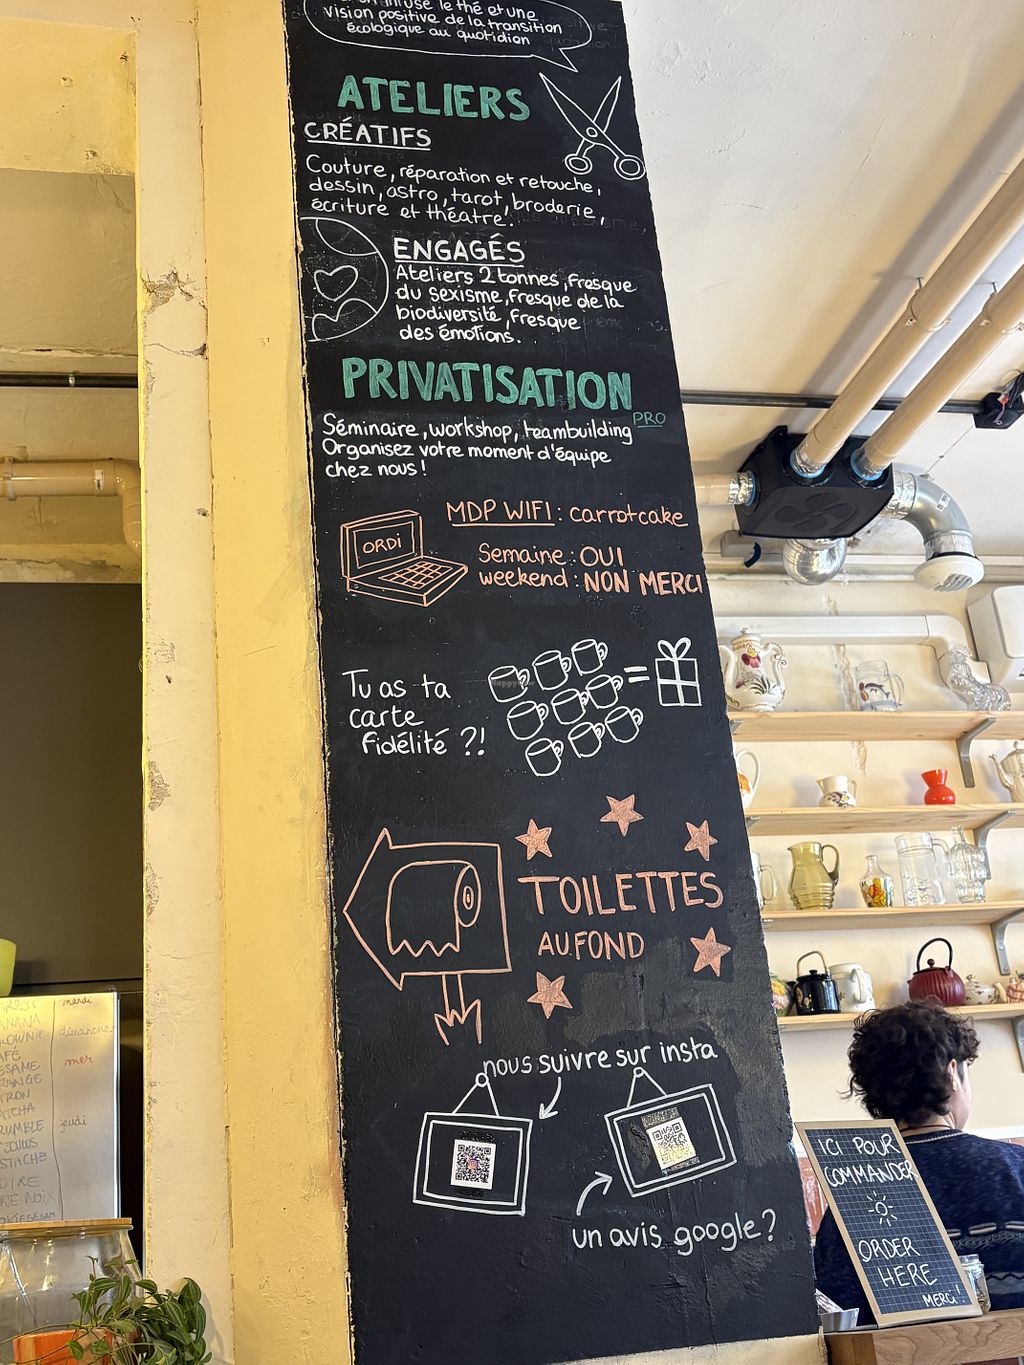 infuse le thé et une
vision positive de la transition
écologique au quotidien
ATELIERS
CRÉATIFS
Couture, réparation et retouche,
dessin, astro, tarot, broderie,
écriture et théatre.
ENGAGÉS
Ateliers 2 tonnes, fresque
du sexisme, fresque de la
biodiversité, fresque
des émotions.
PRIVATISATION
PRO
Séminaire, workshop, teambuilding
Organisez votre moment d'équipe
chez nous !
MDP WIFI : carrotcake
ORDI
Semaine : OUI
weekend : NON MERCI
Tu as ta
carte
fidélité ?!
=
TOILETTES
AU FOND
nous suivre sur insta
un avis google ?
mardi
dimanche
mer
jeudi
ICI POUR
COMMANDER
ORDER
HERE
MERCI !